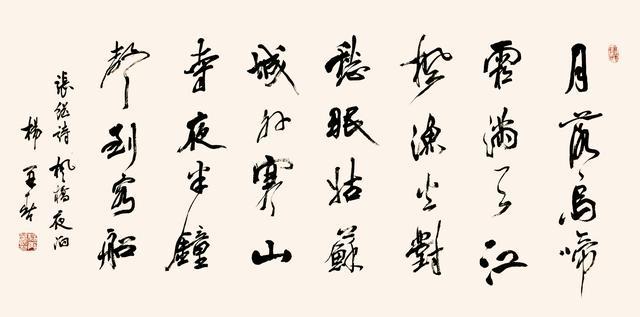 月落烏啼
霜滿天江
楓漁火對
愁眠姑蘇
城外寒山
寺夜半鐘
聲到客船
張繼詩楓橋夜泊
楊